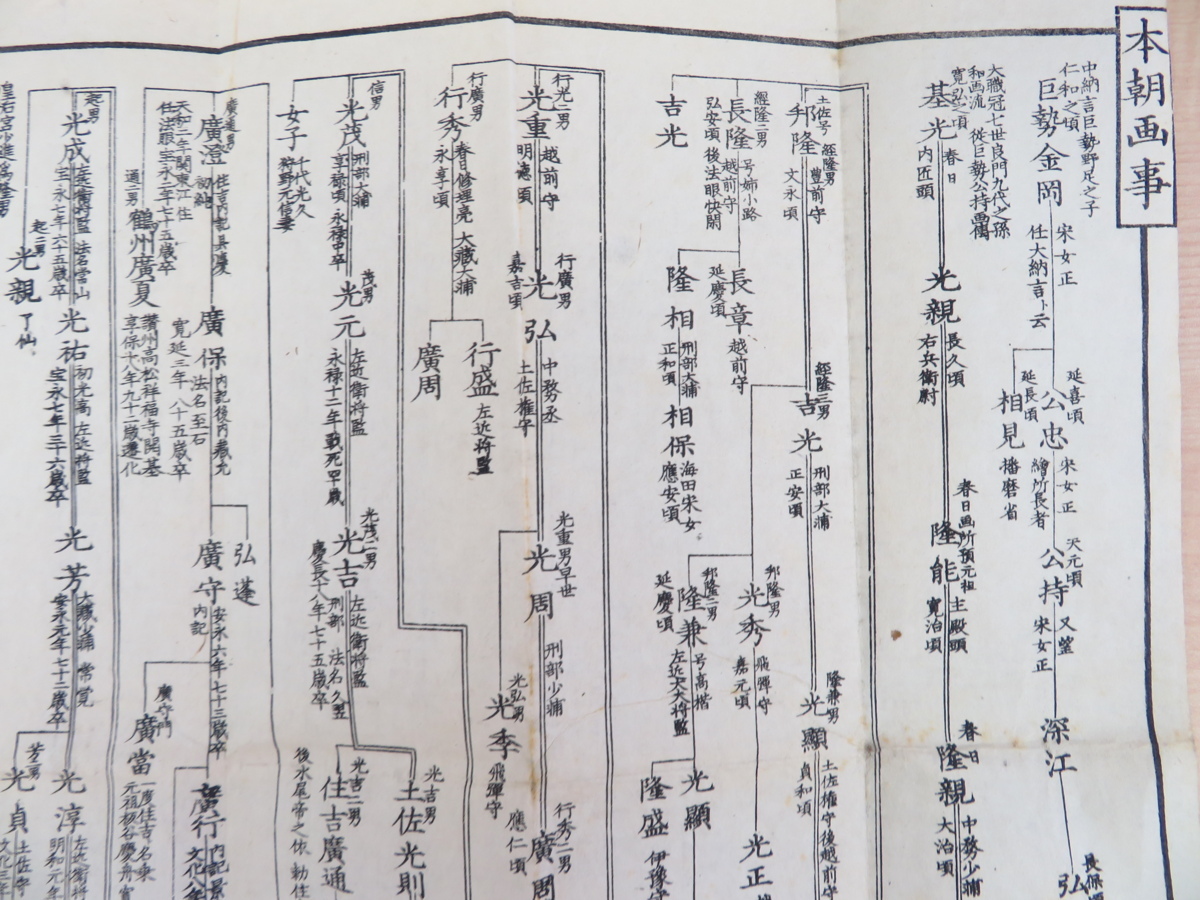 本朝画事
中納言巨勢野足之子
仁和之頃
巨勢金岡
宋女正
任大納言ト云
延喜頃
公忠
宋女正
繪所長者
延長頃
相見
播磨省
天元頃
公持
又 
宋女正
深江
長保頃
弘
大職冠七世良門九代之孫
和画流 従巨勢公持
寛弘之頃
基光
春日
内匠頭
光親
長久頃
右兵衛尉
春日画所預元祖
隆能
主殿頭
寛治頃
春日
隆親
中務少輔
大治頃
土佐号
経隆男
邦隆
豊前守
文永頃
経隆三男
吉光
刑部大輔
正安頃
隆兼男
光顯
土佐権守後越前守
貞和頃
経隆二男
長隆
号姉小路
越前守
弘安頃 後法眼快閑
長章
越前守
延慶頃
隆相
刑部大輔
正和頃
相保
海田宋女
應安頃
邦隆男
光秀
飛彈守
嘉元頃
光正
邦隆二男
隆兼
号高楷
左近大夫将監
延慶頃
光顯
隆盛
伊豫守
吉光
行光二男
光重
越前守
明徳頃
行廣男
光弘
中務丞
土佐権守
嘉吉頃
光重男早世
光周
刑部少輔
光弘男
光季
飛彈守
應仁頃
行秀二男
廣周
行廣男
行秀
春日修理亮
大藏大輔
永享頃
行盛
左近将監
廣周
信男
光茂
刑部大輔
享禄頃 永禄中卒
茂男
光元
左近衛将監
永禄十二年戦死
光茂二男
光吉
左近衛将監
刑部 法名久翌
慶長十八年七十五歳卒
光吉男
土佐光則
光吉二男
住吉廣通
後水尾帝之依
女子
千代光久
狩野元信妻
廣通男
廣澄
住吉内記具慶
初純
天和二年関東江住
任法眼宝永二年七十五歳卒
廣保
内記後内藏允
法名至石
寛延三年八十五歳卒
弘蓬
廣守
内記
安永六年七十三歳卒
廣守門
廣當
一度住吉ノ名乗
元祖板谷慶舟
廣行
内記
文化八年
通二男
鶴州廣夏
讃州高松祥福寺開基
享保十八年九十二歳遷化
起男
光成
左近衛将監 法名常山
宝永七年六十五歳卒
光祐
初光高 左近将監
宝永七年三十六歳卒
光芳
大藏少輔 常覚
安永元年七十三歳卒
光淳
左近衛将
明和元年
芳二男
光貞
土佐守
文化三年
起二男
光親
了仙